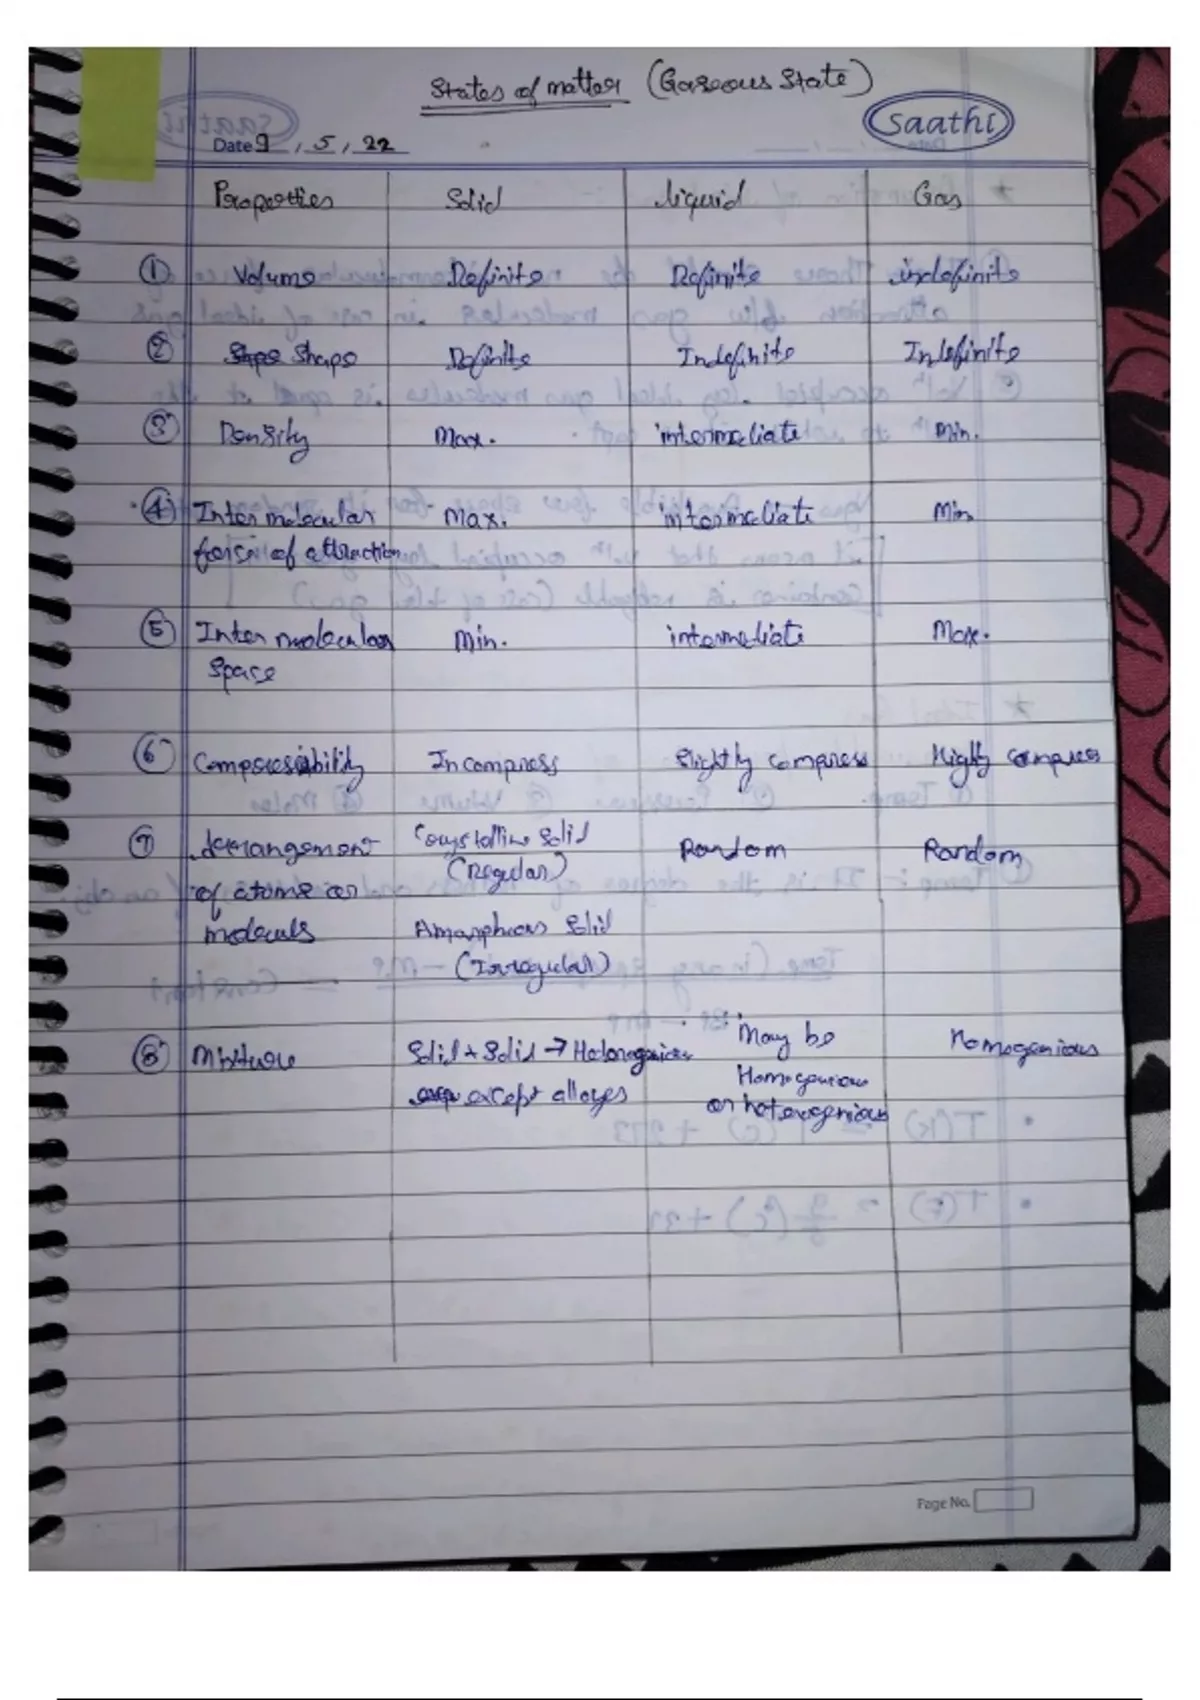 States of matter (Gaseous State)
saathi
Date 9 / 5 / 22
Properties Solid liquid Gas
① Volume Definite Definite indefinite
② Shape Shape Definite Indefinite Indefinite
③ Density Max. intermediate Min.
④ Inter molecular Max. intermediate Min
force of attraction
⑤ Inter molecular Min. intermediate Max.
Space
⑥ Compressibility Incompress Slightly compress Highly compress
⑦ Arrangement Crystalline Solid Random Random
of atoms or (Regular)
moleculs Amorphous Solid
(Irregular)
⑧ Mixture Solid + Solid → Heterogenious May be Homogenious
except alloyes Homogenious
or heterogenious
Page No.